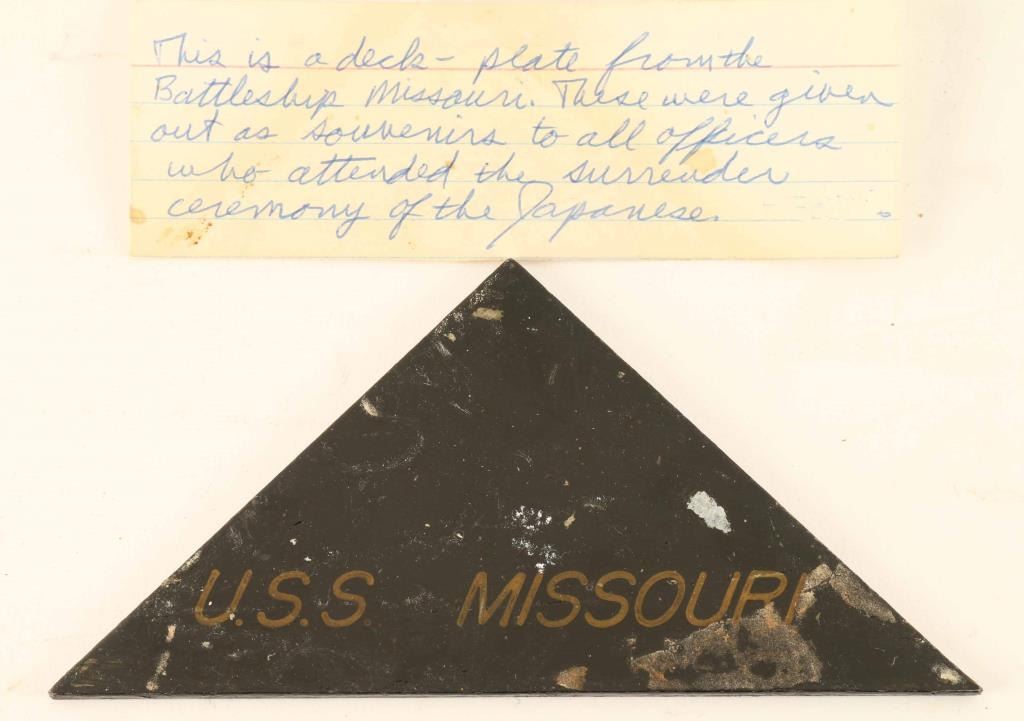 This is a deck - plate from the
Battleship Missouri. These were given
out as souvenirs to all officers
who attended the surrender
ceremony of the Japanese.
U.S.S. MISSOURI